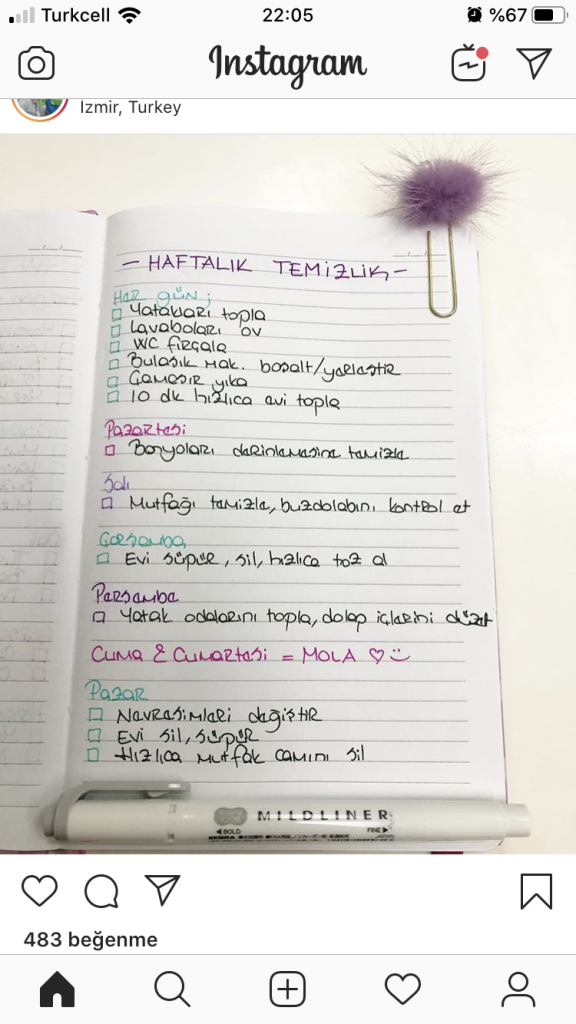 Turkcell 22:05 %67
Instagram
Izmir, Turkey
- HAFTALIK TEMİZLİK -
Her gün;
Yatakları topla
Lavaboları ov
WC fırçala
Bulaşık mak. boşalt/yerleştir
Çamaşır yıka
10 dk hızlıca evi topla
Pazartesi
Banyoları derinlemesine temizle
Salı
Mutfağı temizle, buzdolabını kontrol et
Çarşamba
Evi süpür, sil, hızlıca toz al
Perşembe
Yatak odalarını topla, dolap içlerini düzelt
Cuma & Cumartesi = MOLA ♡
Pazar
Nevresimleri değiştir
Evi sil, süpür
Hızlıca mutfak camını sil
MILDLINER
◀BOLD
FINE▶
ZEBRA
JAPAN
483 beğenme